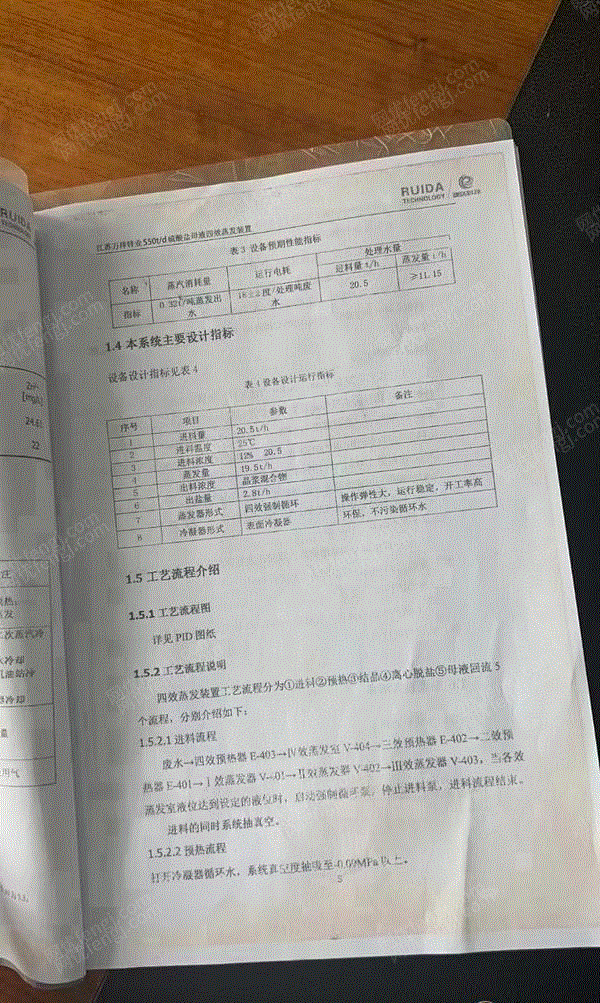 RUIDA
TECHNOLOGY
550t/d 硫酸盐母液四效蒸发装置
表 3 设备预期性能指标
名称 蒸汽消耗量 运行电耗 处理水量
进料量 t/h 蒸发量 t/h
指标 0.32t/吨蒸发出水 度/处理吨废水 20.5 ≥11.15
1.4 本系统主要设计指标
设备设计指标见表 4
表 4 设备设计运行指标
序号 项目 参数 备注
1 进料量 20.5t/h
2 进料温度 25℃
3 进料浓度 12% 20.5
4 蒸发量 19.5t/h
5 出料浓度 晶浆混合物
6 出盐量 2.8t/h
7 蒸发器形式 四效强制循环 操作弹性大，运行稳定，开工率高
8 冷凝器形式 表面冷凝器 环保，不污染循环水
1.5 工艺流程介绍
1.5.1 工艺流程图
详见 PID 图纸
1.5.2 工艺流程说明
四效蒸发装置工艺流程分为①进料②预热③结晶④离心脱盐⑤母液回流 5
个流程，分别介绍如下：
1.5.2.1 进料流程
废水→四效预热器 E-403→Ⅳ效蒸发室 V-404→三效预热器 E-402→二效预
热器 E-401→Ⅰ效蒸发器 V-401→Ⅱ效蒸发器 V-402→Ⅲ效蒸发器 V-403，当各效
蒸发室液位达到设定的液位时，启动强制循环泵，停止进料泵，进料流程结束。
进料的同时系统抽真空。
1.5.2.2 预热流程
打开冷凝器循环水，系统真空度抽吸至-0.09MPa 以上。
5